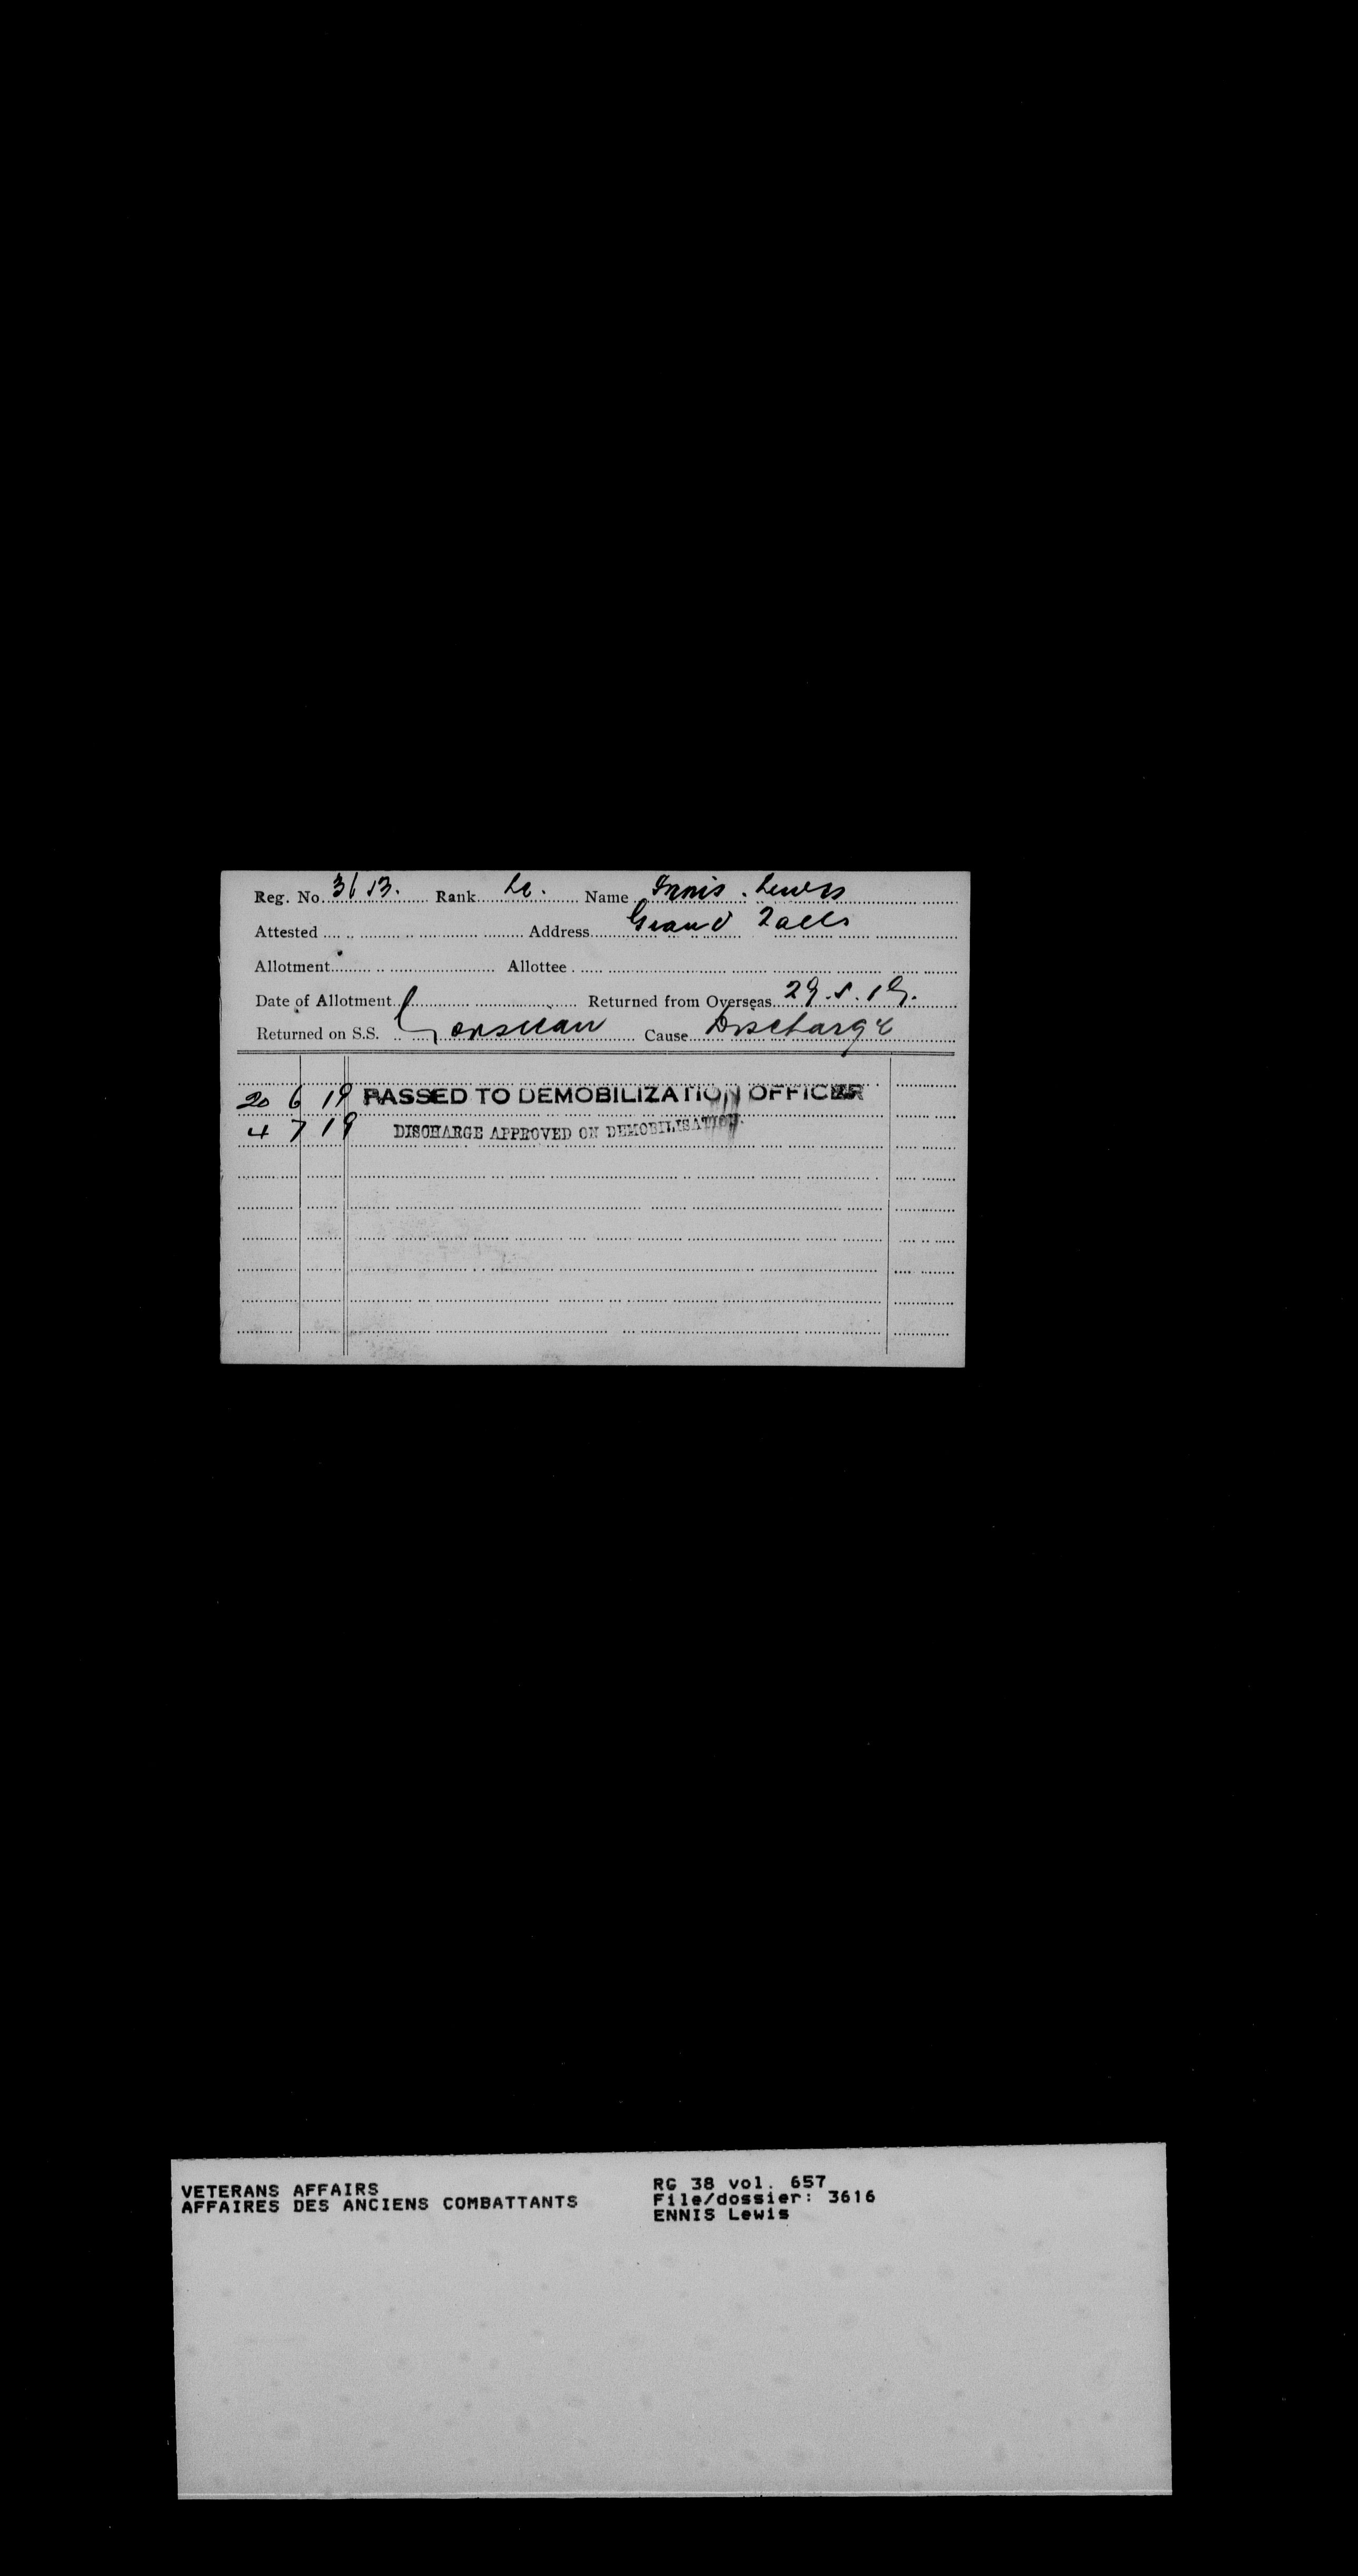 Reg. No. 3613. Rank Name Innis. Lewis
Attested Address Grand Falls
Allotment Allottee
Date of Allotment Returned from Overseas 29.5.19.
Returned on S.S. Corsican Cause Discharge
20 6 19 PASSED TO DEMOBILIZATION OFFICER
4 7 19 DISCHARGE APPROVED ON DEMOBILISATION.
VETERANS AFFAIRS RG 38 vol. 657
AFFAIRES DES ANCIENS COMBATTANTS File/dossier: 3616
ENNIS Lewis